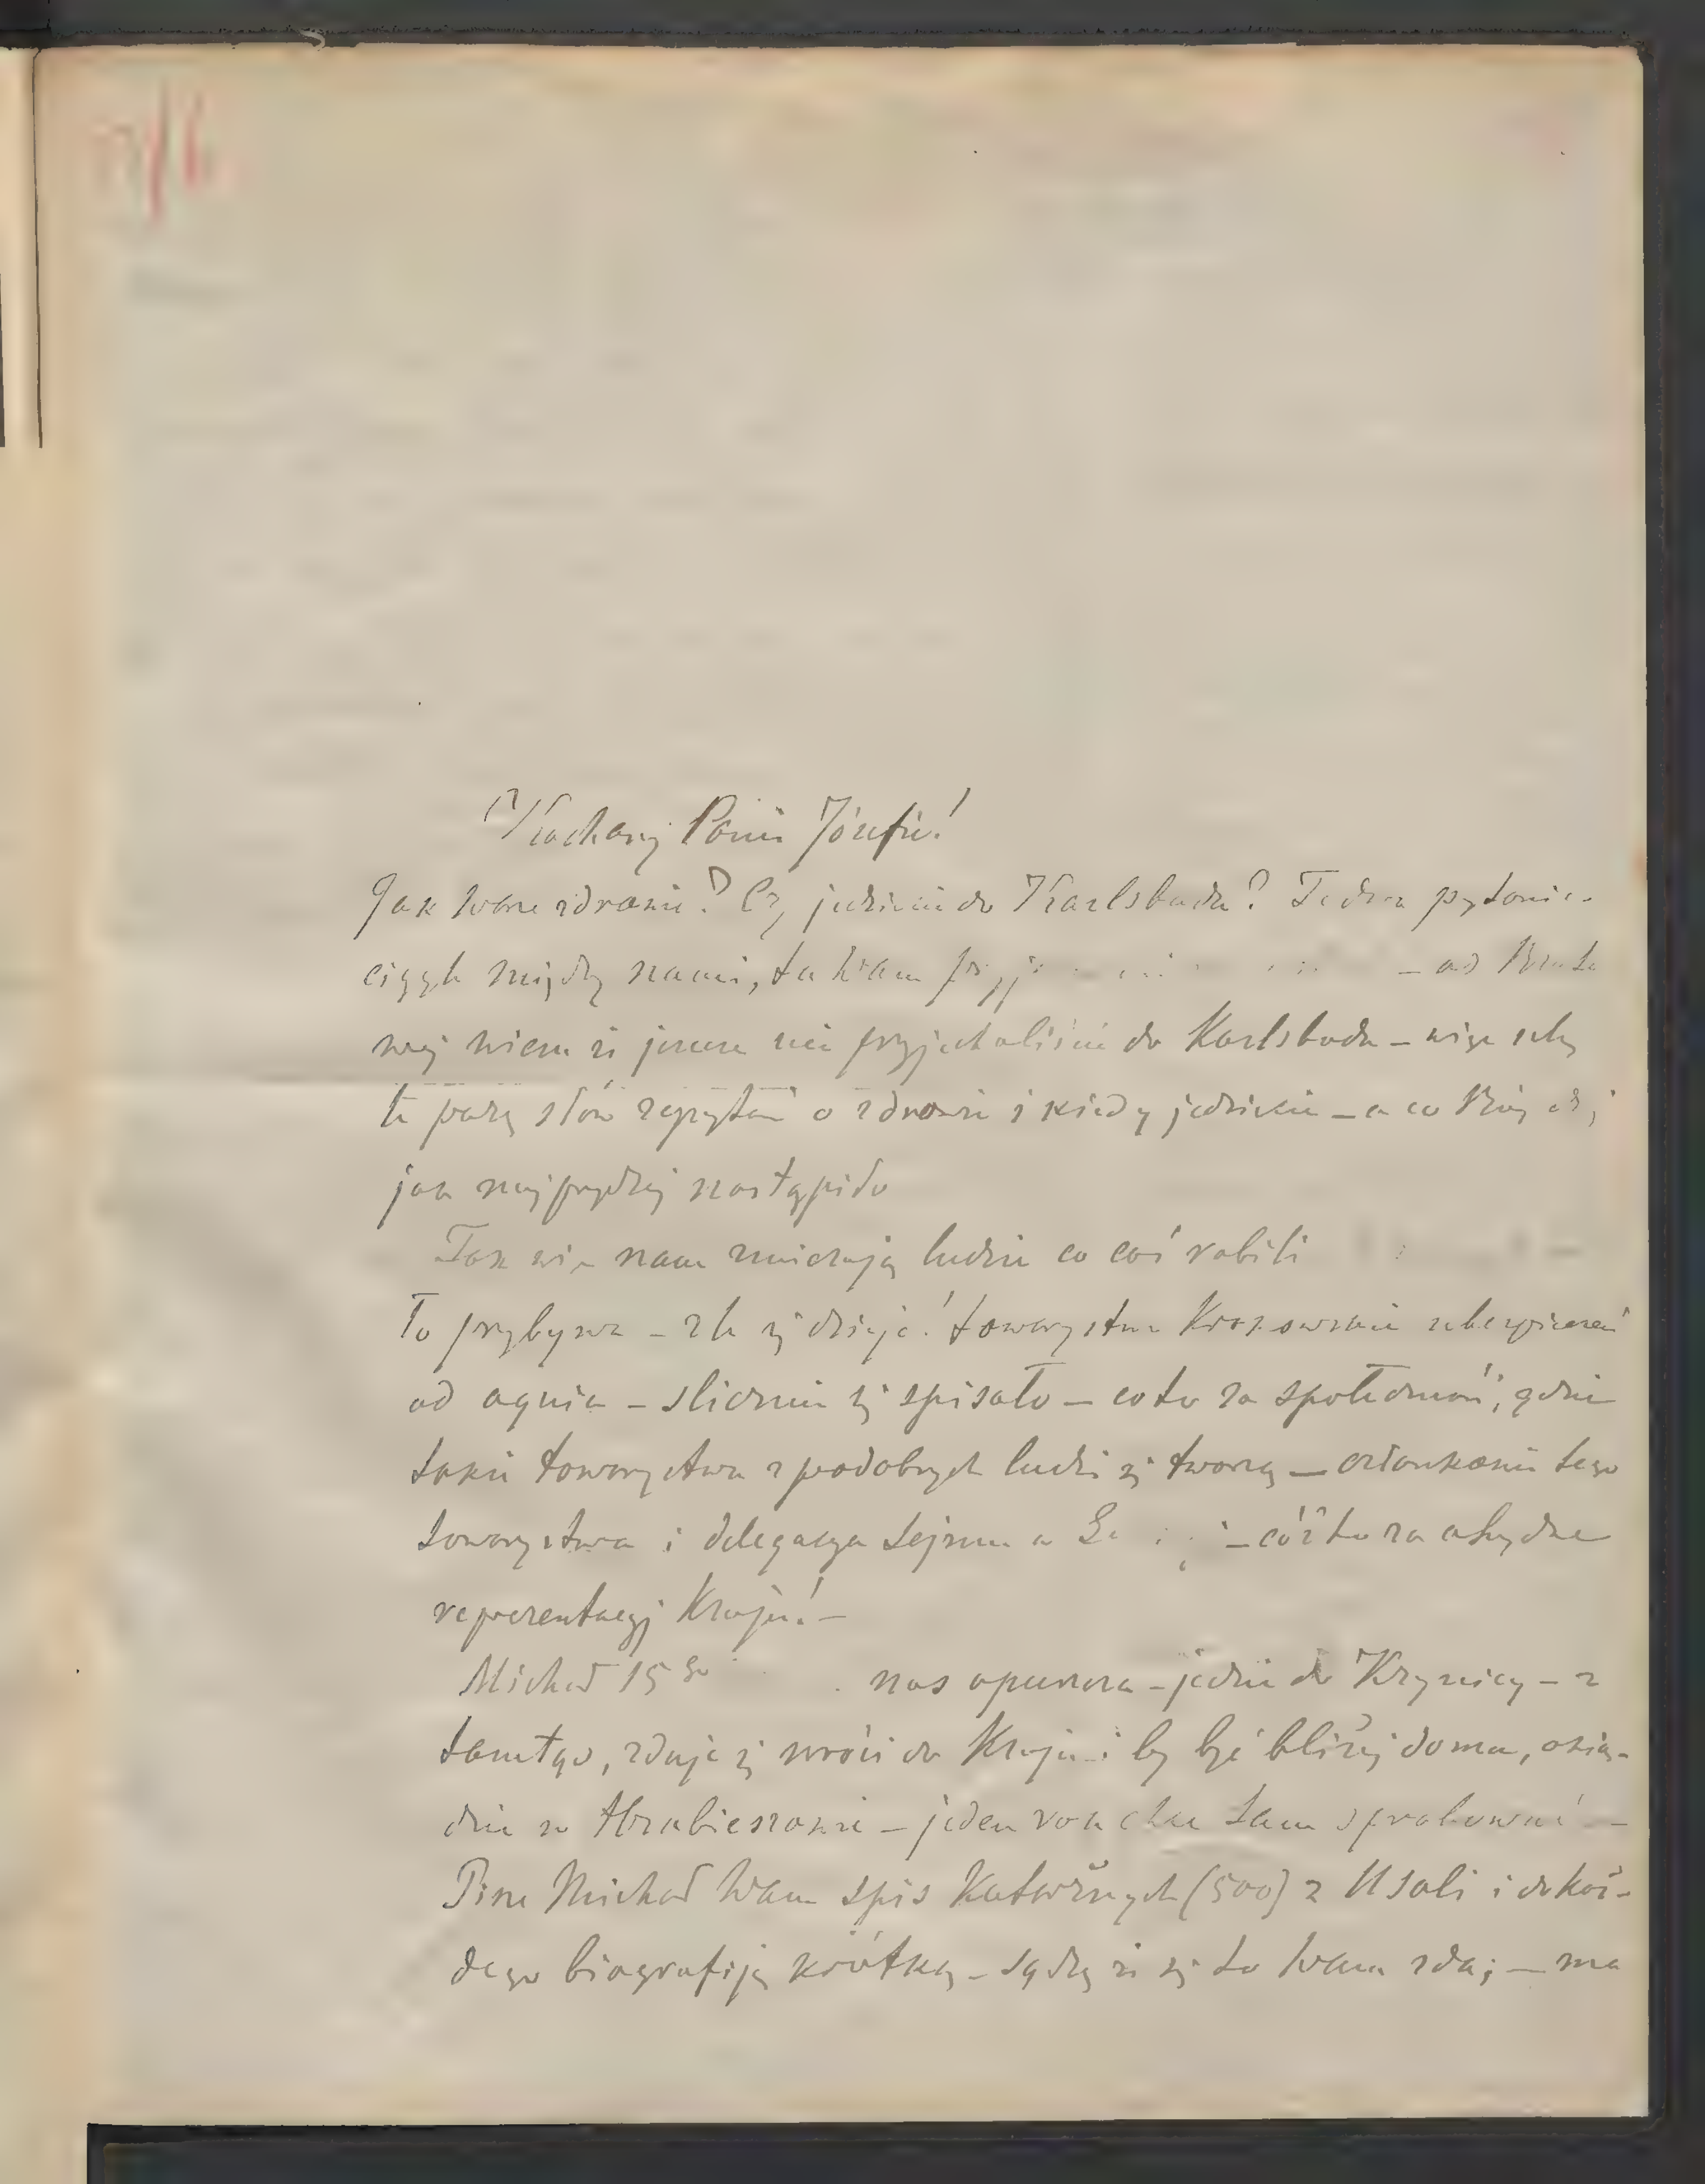 Kochany Panie Józefie!
Jak Wasze zdrowie? Czy jedziecie do Karlsbadu? Te dwa pytania
ciągle między nami, ta Wam – od Brata
mej wiem że jeszcze nie przyjechaliście do Karlsbadu – więc
te parę słów zapytań o zdrowie i kiedy jedziecie – a co Bóg
jak najprędzej nastąpiło
Tak nam ludzie co coś robili
To przybywa – źle się dzieje! towarzystwo Krakowskie ubezpieczeń
od ognia – ślicznie się spisało – co to za społeczność, gdzie
takie towarzystwa z podobnych ludzi się tworzą – członkowie tego
towarzystwa i delegacya Sejmu – cóż to za ohydne
reprezentacyj Kraju! –
Michał 15go nas opuszcza – jedzie do Krynicy – z
tamtąd, zdaje się wróci do Kraju i by być bliżej doma, osią-
dzie w Hrubieszowie – jeden rok chce tam spróbować –
Pisze Michał Wam spis Katorżnych (500) z Usoli i do każ-
dego biografiją krótką – sądzę że się to Wam zda; – ma